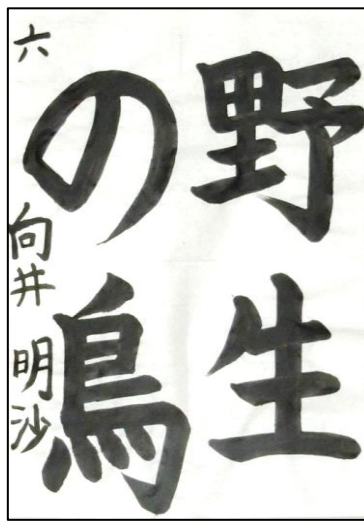 野生
の鳥
六 向井 明沙